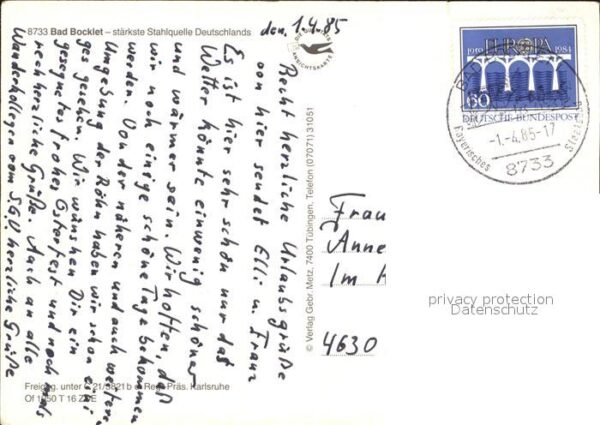 8733 Bad Bocklet – stärkste Stahlquelle Deutschlands
den. 1.4.85
Recht herzliche Urlaubsgrüße
von hier sendet Elli u. Franz
Es ist hier sehr schön nur das
Wetter könnte einwenig schöner
und wärmer sein. Wir hoffen, daß
wir noch einige schöne Tage bekommen
werden. Von der näheren und auch weiteren
Umgebung der Röhn haben wir schon eini-
ges gesehen. Wir wünschen Dir ein
gesegnetes frohes Osterfest und nochmals
recht herzliche Grüße. Auch an alle
Wanderkollegen vom S.G.V. herzliche Grüße
© Verlag Gebr. Metz, 7400 Tübingen, Telefon (07071) 31051
ANSICHTSKARTE
1959 EUROPA 1984
60
DEUTSCHE BUNDESPOST
Bayerisches
-1.-4.85-17
8733
Frau
Anne
Im
4630
privacy protection
Datenschutz
Freigeg. unter
Reg. Präs. Karlsruhe